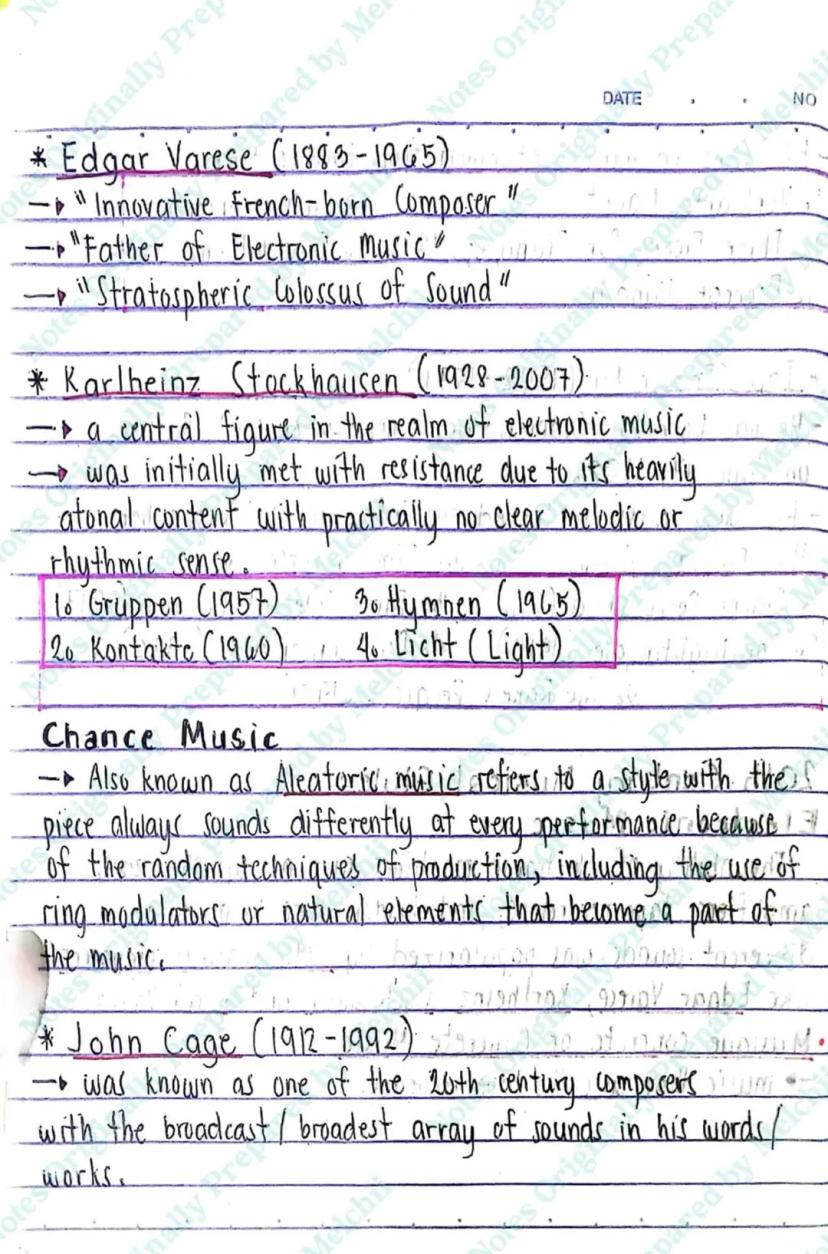 DATE . . NO
* Edgar Varese (1883-1965)
→ "Innovative French-born Composer"
→ "Father of Electronic Music"
→ "Stratospheric Colossus of Sound"
* Karlheinz Stockhausen (1928-2007)
→ a central figure in the realm of electronic music
→ was initially met with resistance due to its heavily
atonal content with practically no clear melodic or
rhythmic sense.
1. Gruppen (1957) 3. Hymnen (1965)
2. Kontakte (1960) 4. Licht (Light)
Chance Music
→ Also known as Aleatoric music refers to a style with the
piece always sounds differently at every performance because
of the random techniques of production, including the use of
ring modulators or natural elements that become a part of
the music.
* John Cage (1912-1992)
→ was known as one of the 20th century composers
with the broadcast/broadest array of sounds in his words/
works.
Notes Originally Prepared by Melchii